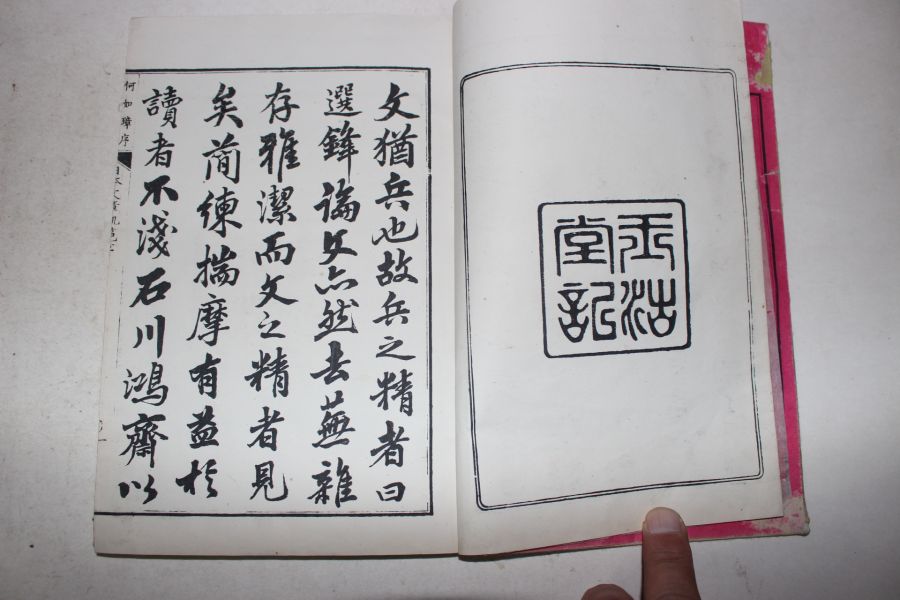 堂記
文猶兵也故兵之精者曰
選鋒論文亦然去蕪雜
存雅潔而文之精者見
矣簡練揣摩有益於
讀者不淺石川鴻齋以
何如璋序
日本文章軌範